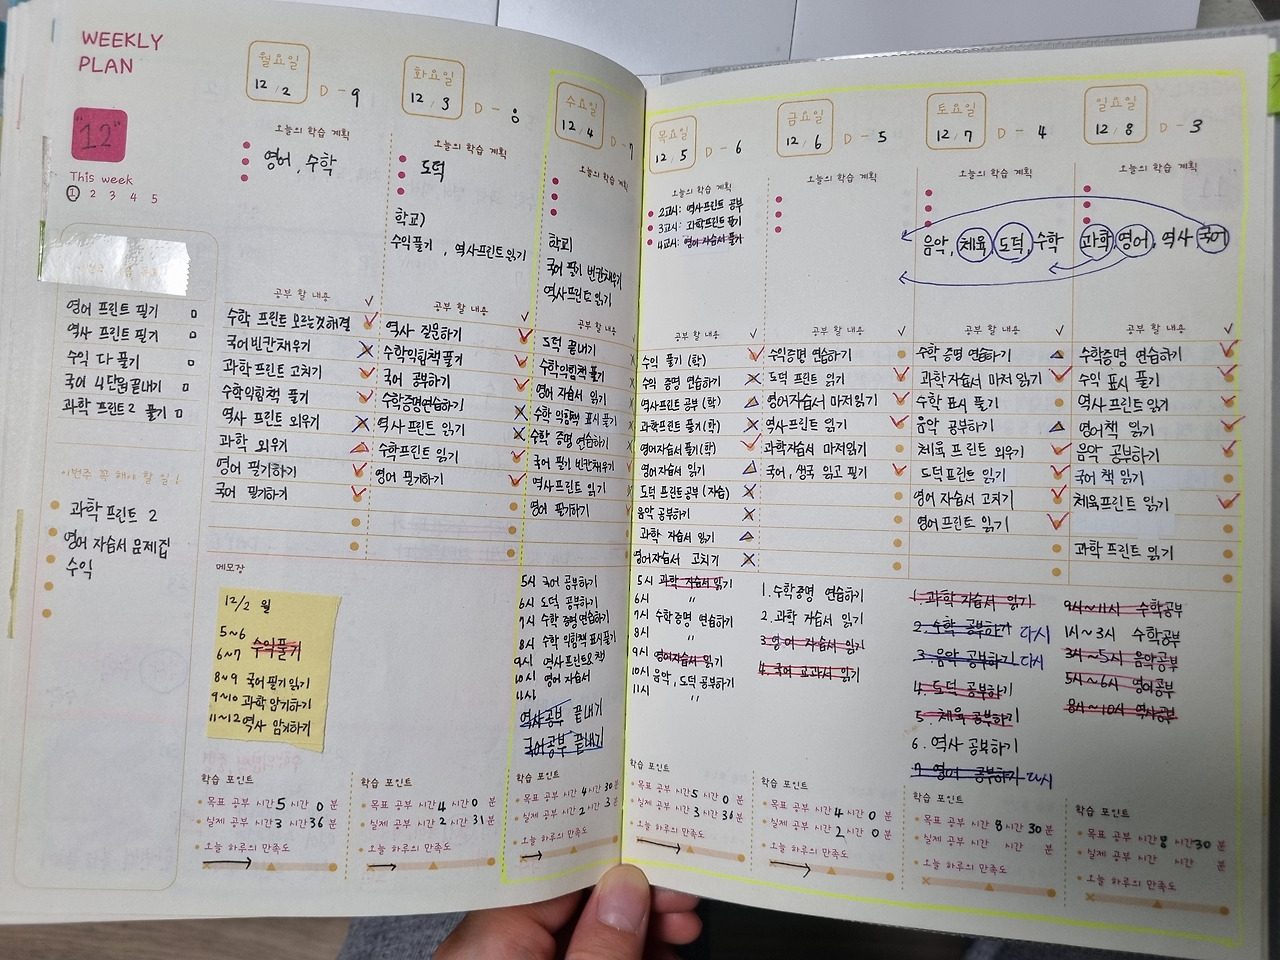 WEEKLY
PLAN
"12"
This week
1 2 3 4 5
영어 프린트 필기
역사 프린트 필기
수익 다 풀기
국어 4단원끝내기
과학 프린트2 풀기
이번주 꼭 해야 할 일!
과학 프린트 2
영어 자습서 문제집
수익
월요일
12 / 2 D - 9
오늘의 학습 계획
영어, 수학
공부 할 내용 ✓
수학 프린트 모르는것해결
국어빈칸채우기
과학프린트 고치기
수학익힘책 풀기
역사 프린트 외우기
과학 외우기
영어 필기하기
국어 필기하기
메모장
12/2 월
5~6
수익풀기
6~7
8~9 국어필기읽기
9~10 과학암기하기
11~12 역사 암기하기
학습 포인트
목표 공부 시간 5 시간 0 분
실제 공부 시간 3 시간 36 분
오늘 하루의 만족도
화요일
12 / 3 D - 8
오늘의 학습 계획
도덕
학교)
수익풀기, 역사프린트읽기
공부 할 내용 ✓
역사 질문하기
수학익힘책풀기
국어 공부하기
수학증명연습하기
역사프린트 읽기
수학프린트 읽기
영어 필기하기
학습 포인트
목표 공부 시간 4 시간 0 분
실제 공부 시간 2 시간 31 분
오늘 하루의 만족도
수요일
12 / 4 D - 7
오늘의 학습 계획
학교)
국어 필기 빈칸채우기
역사프린트 읽기
공부 할 내용
도덕 끝내기
수학익힘책 풀기
영어 자습서 읽기
수학 익힘책 표시풀기
수학 증명 연습하기
국어 필기 빈칸채우기
역사프린트 읽기
영어 필기하기
5시 국어 공부하기
6시 도덕 공부하기
7시 수학 증명 연습하기
8시 수학 익힘책 표시풀기
9시 역사프린트&책
10시 영어 자습서
11시
역사공부 끝내기
국어공부 끝내기
학습 포인트
목표 공부 시간 4 시간 30 분
실제 공부 시간 2 시간 3 분
오늘 하루의 만족도
목요일
12 / 5 D - 6
오늘의 학습 계획
2교시: 역사프린트 공부
3교시: 과학프린트 풀기
4교시: 영어 자습서 풀기
공부 할 내용 ✓
수익 풀기 (학)
수익 증명 연습하기
역사프린트 공부 (학)
과학프린트 풀기 (학)
영어자습서 풀기(학)
영어자습서 읽기
도덕 프린트공부 (자습)
음악 공부하기
과학 자습서 읽기
영어자습서 고치기
5시 과학 자습서 읽기
6시 〃
7시 수학증명 연습하기
8시 〃
9시 영어자습서 읽기
10시 음악, 도덕 공부하기
11시 〃
학습 포인트
목표 공부 시간 5 시간 0 분
실제 공부 시간 3 시간 36 분
오늘 하루의 만족도
금요일
12 / 6 D - 5
오늘의 학습 계획
공부 할 내용 ✓
수익증명 연습하기
도덕 프린트 읽기
영어자습서 마저읽기
역사프린트 읽기
과학자습서 마저읽기
국어, 생국 읽고 필기
1. 수학증명 연습하기
2. 과학 자습서 읽기
3. 영어 자습서 읽기
4. 국어 교과서 읽기
학습 포인트
목표 공부 시간 4 시간 0 분
실제 공부 시간 2 시간 0 분
오늘 하루의 만족도
토요일
12 / 7 D - 4
오늘의 학습 계획
음악, 체육, 도덕, 수학
공부 할 내용 ✓
수학 증명 연습하기
과학자습서 마저 읽기
수학 표시 풀기
음악 공부하기
체육 프린트 외우기
도덕프린트 읽기
영어 자습서 고치기
영어프린트 읽기
1. 과학 자습서 읽기
2. 수학 공부하기 다시
3. 음악 공부하기 다시
4. 도덕 공부하기
5. 체육 공부하기
6. 역사 공부하기
7. 영어 공부하기 다시
학습 포인트
목표 공부 시간 8 시간 30 분
실제 공부 시간 시간 분
오늘 하루의 만족도
일요일
12 / 8 D - 3
오늘의 학습 계획
과학, 영어, 역사 국어
공부 할 내용 ✓
수학증명 연습하기
수익 표시 풀기
역사프린트 읽기
영어책 읽기
음악 공부하기
국어 책 읽기
체육프린트 읽기
과학 프린트 읽기
9시~11시 수학공부
1시~3시 수학공부
3시~5시 음악공부
5시~6시 영어공부
8시~10시 역사공부
학습 포인트
목표 공부 시간 8 시간 30 분
실제 공부 시간 시간 분
오늘 하루의 만족도